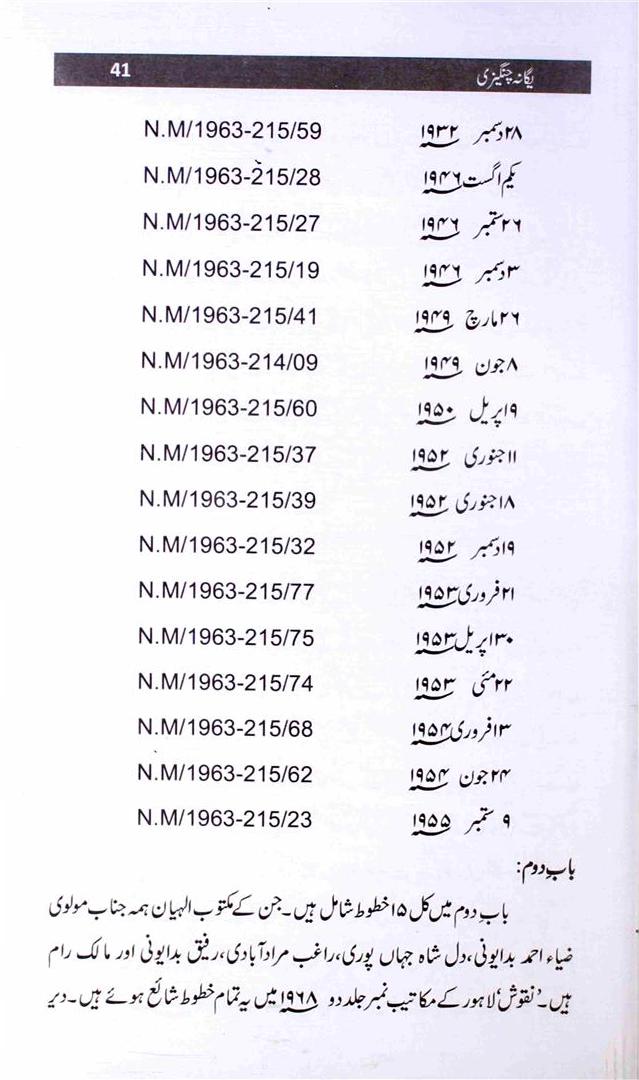 یگانہ چنگیزی 41
۲۸ دسمبر ۱۹۳۲؁ N.M/1963-215/59
یکم اگست ۱۹۴۶؁ N.M/1963-215/28
۲۶ ستمبر ۱۹۴۶؁ N.M/1963-215/27
۳ دسمبر ۱۹۴۶؁ N.M/1963-215/19
۲۶ مارچ ۱۹۴۹؁ N.M/1963-215/41
۸ جون ۱۹۴۹؁ N.M/1963-214/09
۹ اپریل ۱۹۵۰؁ N.M/1963-215/60
۱۱ جنوری ۱۹۵۲؁ N.M/1963-215/37
۱۸ جنوری ۱۹۵۲؁ N.M/1963-215/39
۱۹ دسمبر ۱۹۵۲؁ N.M/1963-215/32
۲۱ فروری ۱۹۵۳؁ N.M/1963-215/77
۳۰ اپریل ۱۹۵۳؁ N.M/1963-215/75
۲۲ مئی ۱۹۵۳؁ N.M/1963-215/74
۱۳ فروری ۱۹۵۴؁ N.M/1963-215/68
۲۴ جون ۱۹۵۴؁ N.M/1963-215/62
۹ ستمبر ۱۹۵۵؁ N.M/1963-215/23
باب دوم:
باب دوم میں کل ۱۵ خطوط شامل ہیں۔ جن کے مکتوب الہیان ہمہ جناب مولوی
ضیاء احمد بدایونی، دل شاہ جہاں پوری، راغب مرادآبادی، رفیق بدایونی اور مالک رام
ہیں۔ ’نقوش‘ لاہور کے مکاتیب نمبر جلد دو ۱۹۶۸؁ میں یہ تمام خطوط شائع ہوئے ہیں۔ دیر